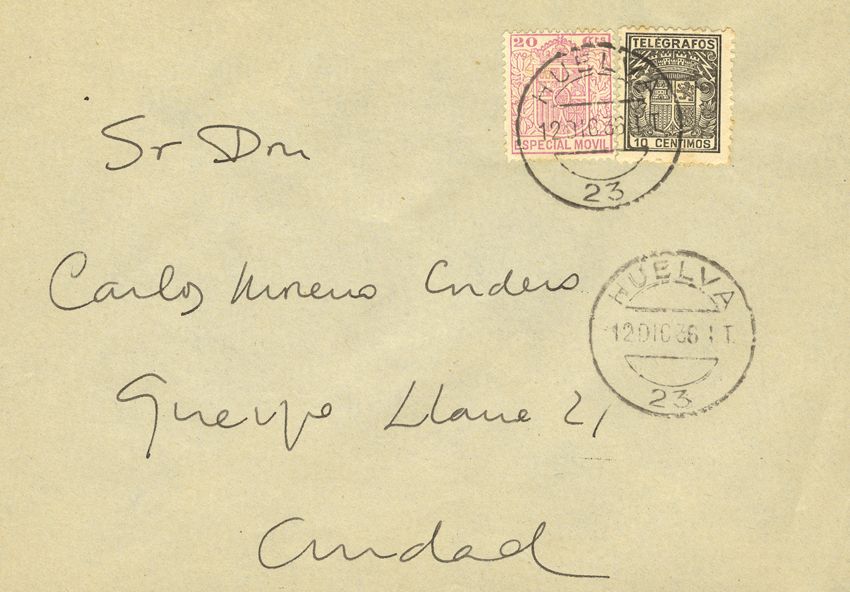 20 Cts
ESPECIAL MOVIL
TELÉGRAFOS
10 CENTIMOS
HUELVA
12 DIC 36 1.T.
23
Sr Dn
Carlos Moreno
HUELVA
12 DIC 36 1.T.
23
Llane 21
Ciudad